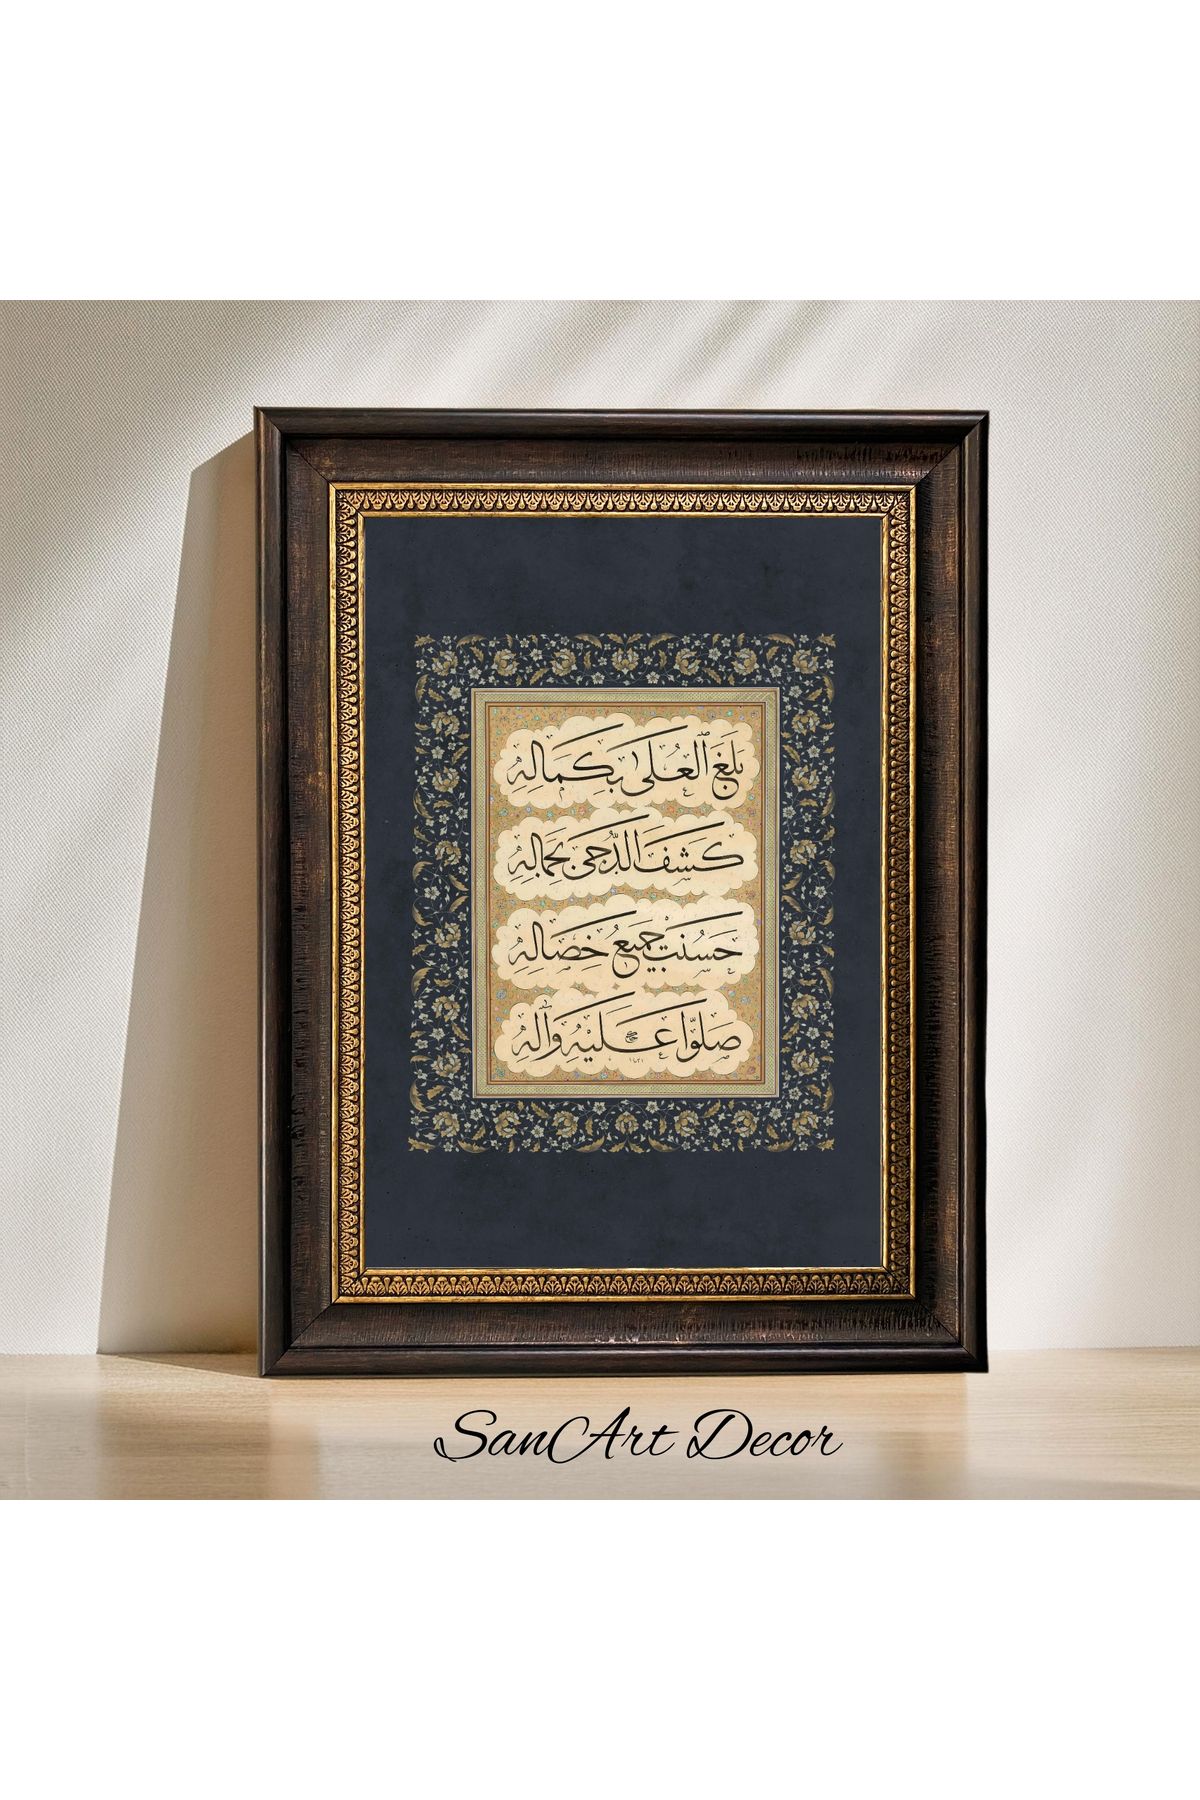 بَلَغَ ٱلْعُلَىٰ بِكَمَالِهِ
كَشَفَ الدُّجَىٰ بِجَمَالِهِ
حَسُنَتْ جَمِيعُ خِصَالِهِ
صَلُّوا عَلَيْهِ وَآلِهِ
SanArt Decor